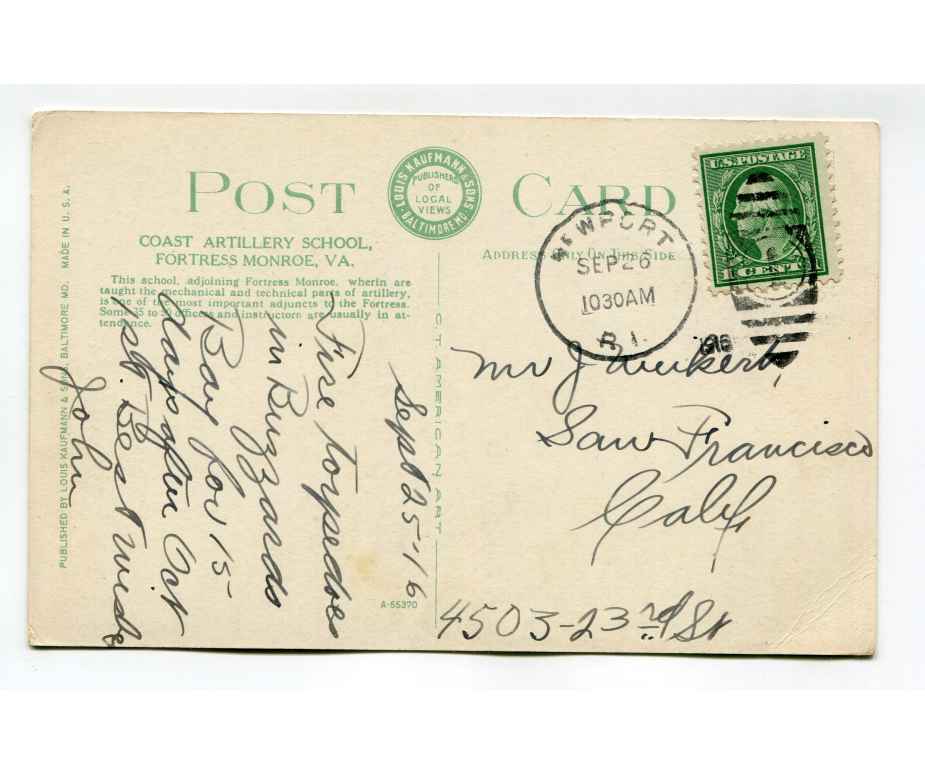 POST CARD
LOUIS KAUFMANN & SONS
BALTIMORE MD.
PUBLISHERS
OF
LOCAL
VIEWS
COAST ARTILLERY SCHOOL,
FORTRESS MONROE, VA.
This school, adjoining Fortress Monroe, wherein are
taught the mechanical and technical parts of artillery,
is one of the most important adjuncts to the Fortress.
Some 25 to officers and instructors are usually in at-
tendence.
ADDRESS ONLY ON THIS SIDE
U.S. POSTAGE
1 CENT
NEWPORT
SEP 26
1030AM
R.I.
1916
Sept 25-16
Fire torpedoes
in Buzzards
Bay for 15
days after Oct
1st Best wishes
John
Mr J
San Francisco
Calif
4503-23rd St
C.T. AMERICAN ART
A-55370
PUBLISHED BY LOUIS KAUFMANN & SONS, BALTIMORE MD. MADE IN U.S.A.